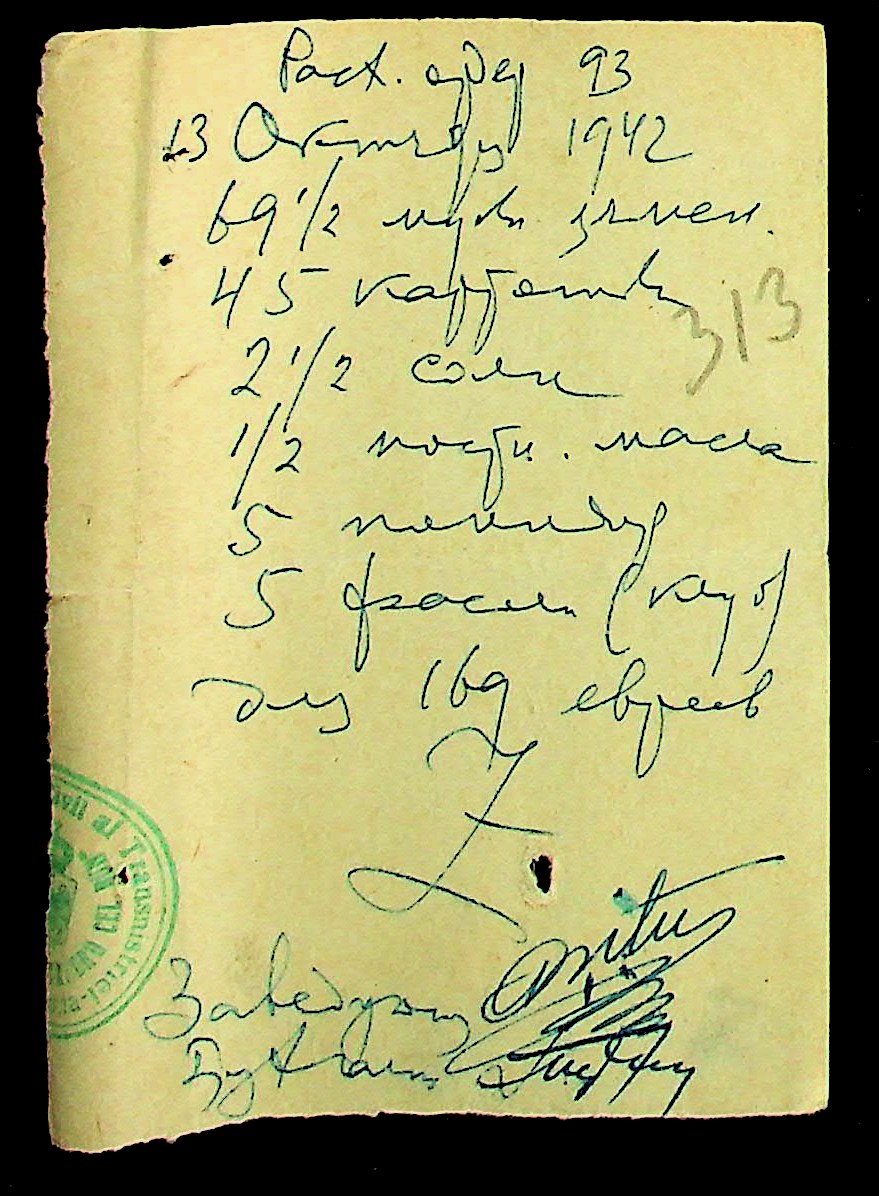 Расх. ордер 93
13 Октября 1942
69 1/2 муки ячмен.
45 картошки
2 1/2 соли
1/2 постн. масла
5 помидор
5 фасоли (куб)
313
для 169 евреев
Заведующ
Бухгалт
vil al Transnistriei